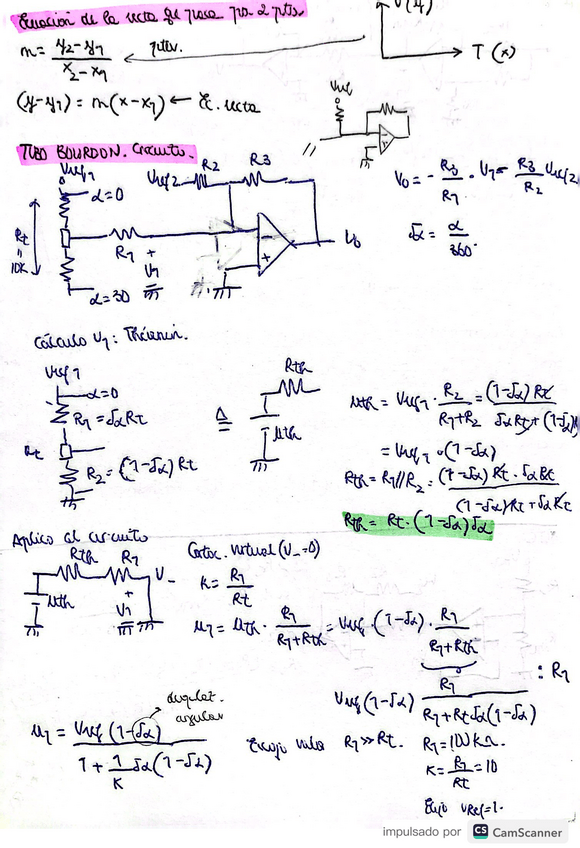 Ecuación de la recta que pasa por 2 ptos.
m = (y2-y1)/(x2-x1)
T (x)
(y-y1) = m(x-x1) ← Ec. recta
Vref
TUBO BOURDON. Circuito.
Vref1
α=0
Vref2
R2
R3
Rt = 10K
R1
+
V1
-
+
V0
α=30
V0 = - R3/R1 · V1 - R3/R2 Vref2
δα = α/360°
Cálculo V1: Thévenin.
Vref1
α=0
R1 = δαRt
Rt
R2 = (1-δα) Rt
≙
Rth
Uth
Uth = Vref1 · R2/(R1+R2) = (1-δα) Rt / (δαRt + (1-δα)Rt)
= Vref1 · (1-δα)
Rth = R1//R2 = (1-δα) Rt · δα Rt / ((1-δα)Rt + δα Rt)
Rth = Rt · (1-δα)δα
Aplico al circuito
Rth
R1
V-
Uth
+
V1
Cortoc. virtual (V-=0)
K = R1/Rt
U1 = Uth · R1/(R1+Rth) = Vref · (1-δα) · R1/(R1+Rth)
Vref(1-δα) R1/(R1+Rtδα(1-δα))
: R1
U1 = Vref (1-δα) / (1 + 1/K δα(1-δα))
angular
Escojo valor R1 >> Rt. R1 = 100 kΩ.
K = R1/Rt = 10
Elijo VRef=1.
impulsado por CS CamScanner